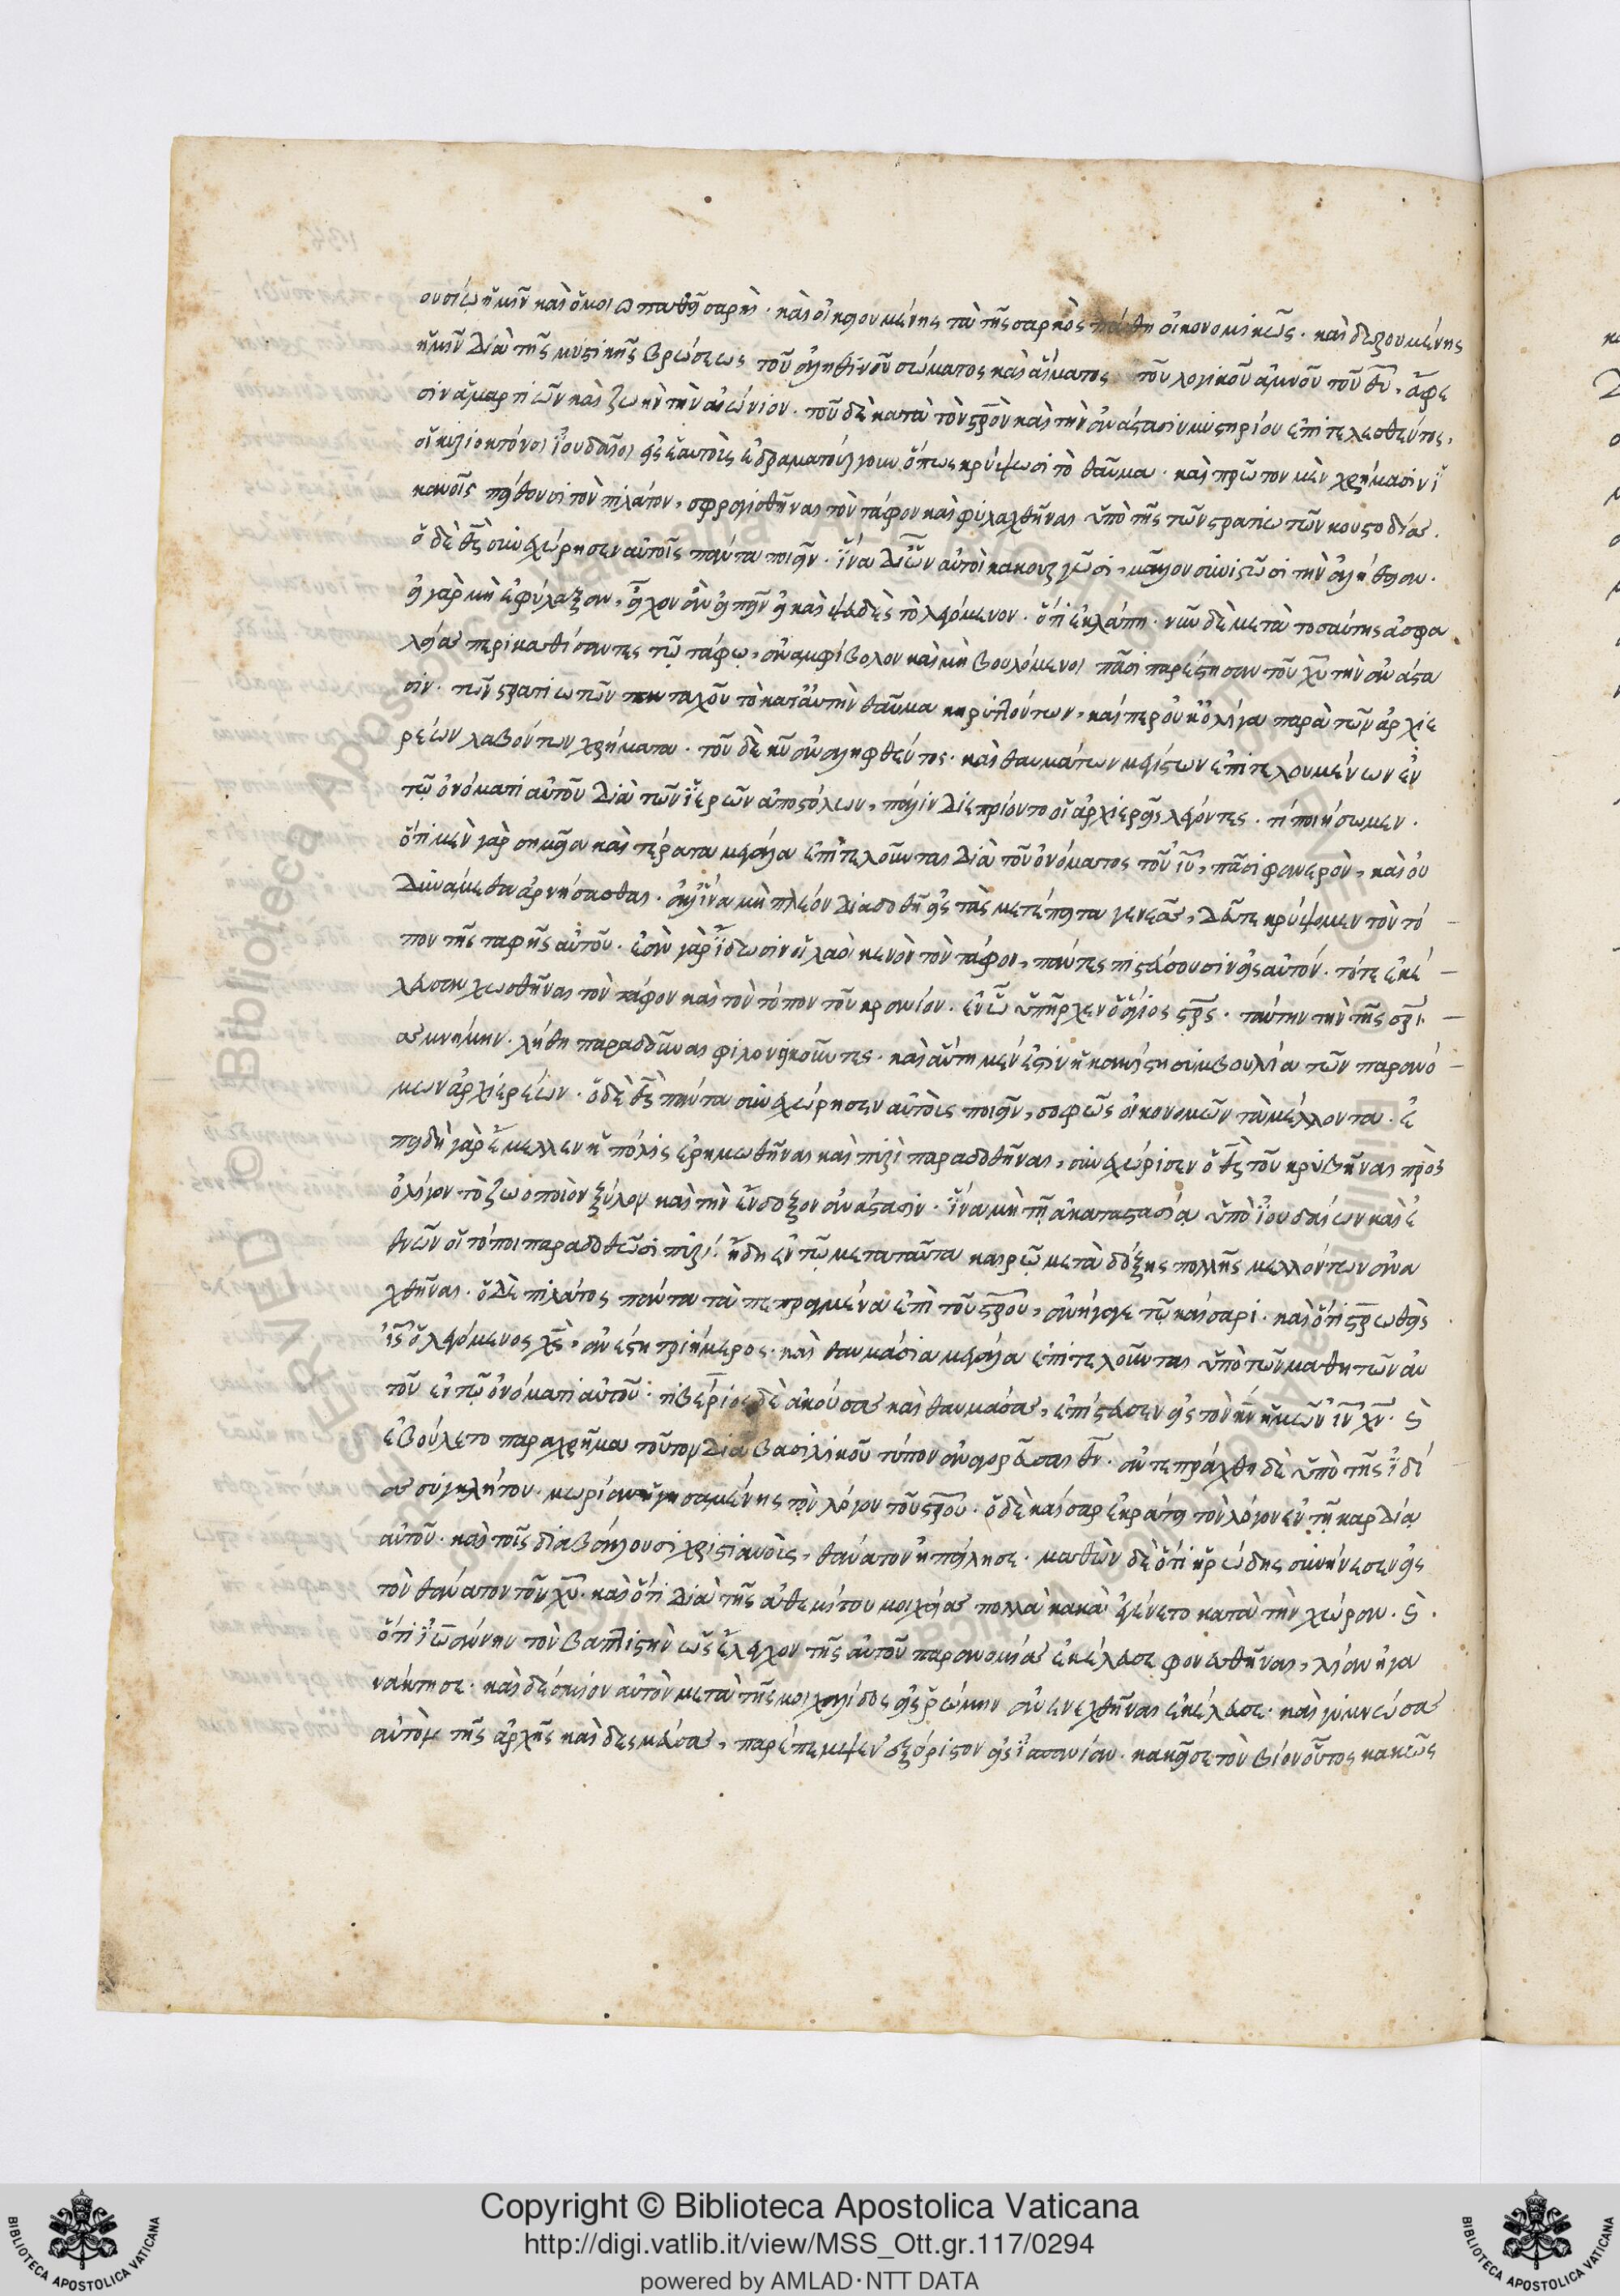 ουσίω ἡμῖν καὶ ὁμοιωπαθεῖ σαρκὶ. καὶ οἰκειουμένης τὰ τῆς σαρκὸς πάθη οἰκονομικῶς. καὶ δωρουμένης
ἡμῖν διὰ τῆς μυστικῆς βρώσεως τοῦ ἀληθινοῦ σώματος καὶ αἵματος τοῦ λογικοῦ ἀμνοῦ τοῦ θυ, ἄφε
σιν ἁμαρτιῶν καὶ ζωὴν τὴν αἰώνιον. τοῦ δὲ κατὰ τὸν σρον καὶ τὴν ἀνάστασιν μυστηρίου ἐπιτελεσθέντος,
οἱ κυριοκτόνοι ἰουδαῖοι εἰς ἑαυτοὺς ἐδραματούργουν ὅπως κρύψωσι τὸ θαῦμα. καὶ πρῶτον μὲν χρήμασιν ἱ
κανοῖς πείθουσι τὸν πιλάτον, σφραγισθῆναι τὸν τάφον καὶ φυλαχθῆναι ὑπὸ τῆς τῶν στρατιωτῶν κουστοδίας.
ὁ δὲ θς συνεχώρησεν αὐτοῖς ταῦτα ποιεῖν. ἵνα δι' ὧν αὐτοὶ κακουργῶσι, μᾶλλον συνιστῶσι τὴν ἀλήθειαν.
εἰ γὰρ μὴ ἐφύλαξαν, εἶχον ἂν εἰπεῖν εἰ καὶ ψευδὲς τὸ λεγόμενον. ὅτι ἐκλάπη. νῦν δὲ μετὰ τοσαύτης ἀσφα
λείας περικαθίσαντες τῷ τάφῳ, ἀναμφίβολον καὶ μὴ βουλόμενοι πᾶσι παρέστησαν τοῦ χυ τὴν ἀνάστα
σιν. τῶν στρατιωτῶν πανταχοῦ τὸ κατ' αὐτὴν θαῦμα κηρυττόντων, καίπερ οὐκ ὀλίγα παρὰ τῶν ἀρχιε
ρέων λαβόντων χρήματα. τοῦ δὲ κυ ἀναληφθέντος. καὶ θαυμάτων μεγίστων ἐπιτελουμένων ἐν
τῷ ὀνόματι αὐτοῦ διὰ τῶν ἱερῶν ἀποστόλων, πάλιν διεπρίοντο οἱ ἀρχιερεῖς λέγοντες. τί ποιήσωμεν.
ὅτι μὲν γὰρ σημεῖα καὶ τέρατα μεγάλα ἐπιτελοῦνται διὰ τοῦ ὀνόματος τοῦ ιυ, πᾶσι φανερὸν, καὶ οὐ
δυνάμεθα ἀρνήσασθαι. ἀλλ' ἵνα μὴ πλέον διαδοθῇ εἰς τὰς μετέπειτα γενεάς, δεῦτε κρύψομεν τὸν τό
πον τῆς ταφῆς αὐτοῦ. ἐὰν γὰρ ἴδωσιν οἱ λαοὶ κενὸν τὸν τάφον, πάντες πιστεύσουσιν εἰς αὐτόν. τότε ἐκέ
λευσαν χωσθῆναι τὸν τάφον καὶ τὸν τόπον τοῦ κρανίου. ἐν ᾧ ὑπῆρχεν ὁ ἅγιος σρς. ταύτην τὴν τῆς σρι
ας μνήμην. λήθῃ παραδοῦναι φιλονεικοῦντες. καὶ αὕτη μέν ἐστιν ἡ κακίστη συμβουλία τῶν παρανό
μων ἀρχιερέων. ὁ δὲ θς πάντα συνεχώρησεν αὐτοῖς ποιεῖν, σοφῶς οἰκονομῶν τὰ μέλλοντα. ἐ
πειδὴ γὰρ ἔμελλεν ἡ πόλις ἐρημωθῆναι καὶ πυρὶ παραδοθῆναι, συνεχώρισεν ὁ θς τοῦ κρυβῆναι πρὸς
ὀλίγον τὸ ζωοποιὸν ξύλον καὶ τὴν ἔνδοξον ἀνάστασιν. ἵνα μὴ τῇ ἀκαταστασίᾳ ὑπὸ ἰουδαίων καὶ ἐ
θνῶν οἱ τόποι παραδοθῶσι πυρί. ἤδη ἐν τῷ μεταταῦτα καιρῷ μετὰ δόξης πολλῆς μελλόντων ἀνα
χθῆναι. ὁ δὲ πιλάτος πάντα τὰ πεπραγμένα ἐπὶ τοῦ σρου, ἀνήγαγε τῷ καίσαρι. καὶ ὅτι σρωθεὶς
ις ὁ λεγόμενος χς, ἀνέστη τριήμερος. καὶ θαυμάσια μεγάλα ἐπιτελοῦνται ὑπὸ τῶν μαθητῶν αὐ
τοῦ ἐν τῷ ὀνόματι αὐτοῦ. τιβέριος δὲ ἀκούσας καὶ θαυμάσας, ἐπίστευσεν εἰς τὸν κν ἡμῶν ιν χν. καὶ
ἐβούλετο παραχρῆμα τοῦτον διὰ βασιλικοῦ τύπου ἀναγορεῦσαι θν. ἀντεπράχθη δὲ ὑπὸ τῆς ἰδί
ας συγκλήτου. μωρίαν ἡγησαμένης τὸν λόγον τοῦ σρου. ὁ δὲ καίσαρ ἐκράτει τὸν λόγον ἐν τῇ καρδίᾳ
αὐτοῦ. καὶ τοῖς διαβάλλουσι χριστιανοὺς, θάνατον ἠπείλησε. μαθὼν δὲ ὅτι ἡρώδης συνήνεσεν εἰς
τὸν θάνατον τοῦ χυ. καὶ ὅτι διὰ τῆς ἀθεμίτου μοιχείας πολλὰ κακὰ ἐγένετο κατὰ τὴν χώραν. καὶ.
ὅτι ἰωάννην τὸν βαπτιστὴν ὡς ἔλεγχον τῆς αὐτοῦ παρανομίας ἐκέλευσε φονευθῆναι, λίαν ἠγα
νάκτησε. καὶ δέσμιον αὐτὸν μετὰ τῆς μοιχαλίδος εἰς ῥώμην ἀνενεχθῆναι ἐκέλευσε. καὶ γυμνώσας
αὐτὸν τῆς ἀρχῆς καὶ δεσμεύσας, παρέπεμψεν ἐξόριστον εἰς ἱσπανίαν. κακεῖσε τὸν βίον οὗτος κακῶς
Copyright © Biblioteca Apostolica Vaticana
http://digi.vatlib.it/view/MSS_Ott.gr.117/0294
powered by AMLAD·NTT DATA
BIBLIOTECA APOSTOLICA VATICANA
BIBLIOTECA APOSTOLICA VATICANA